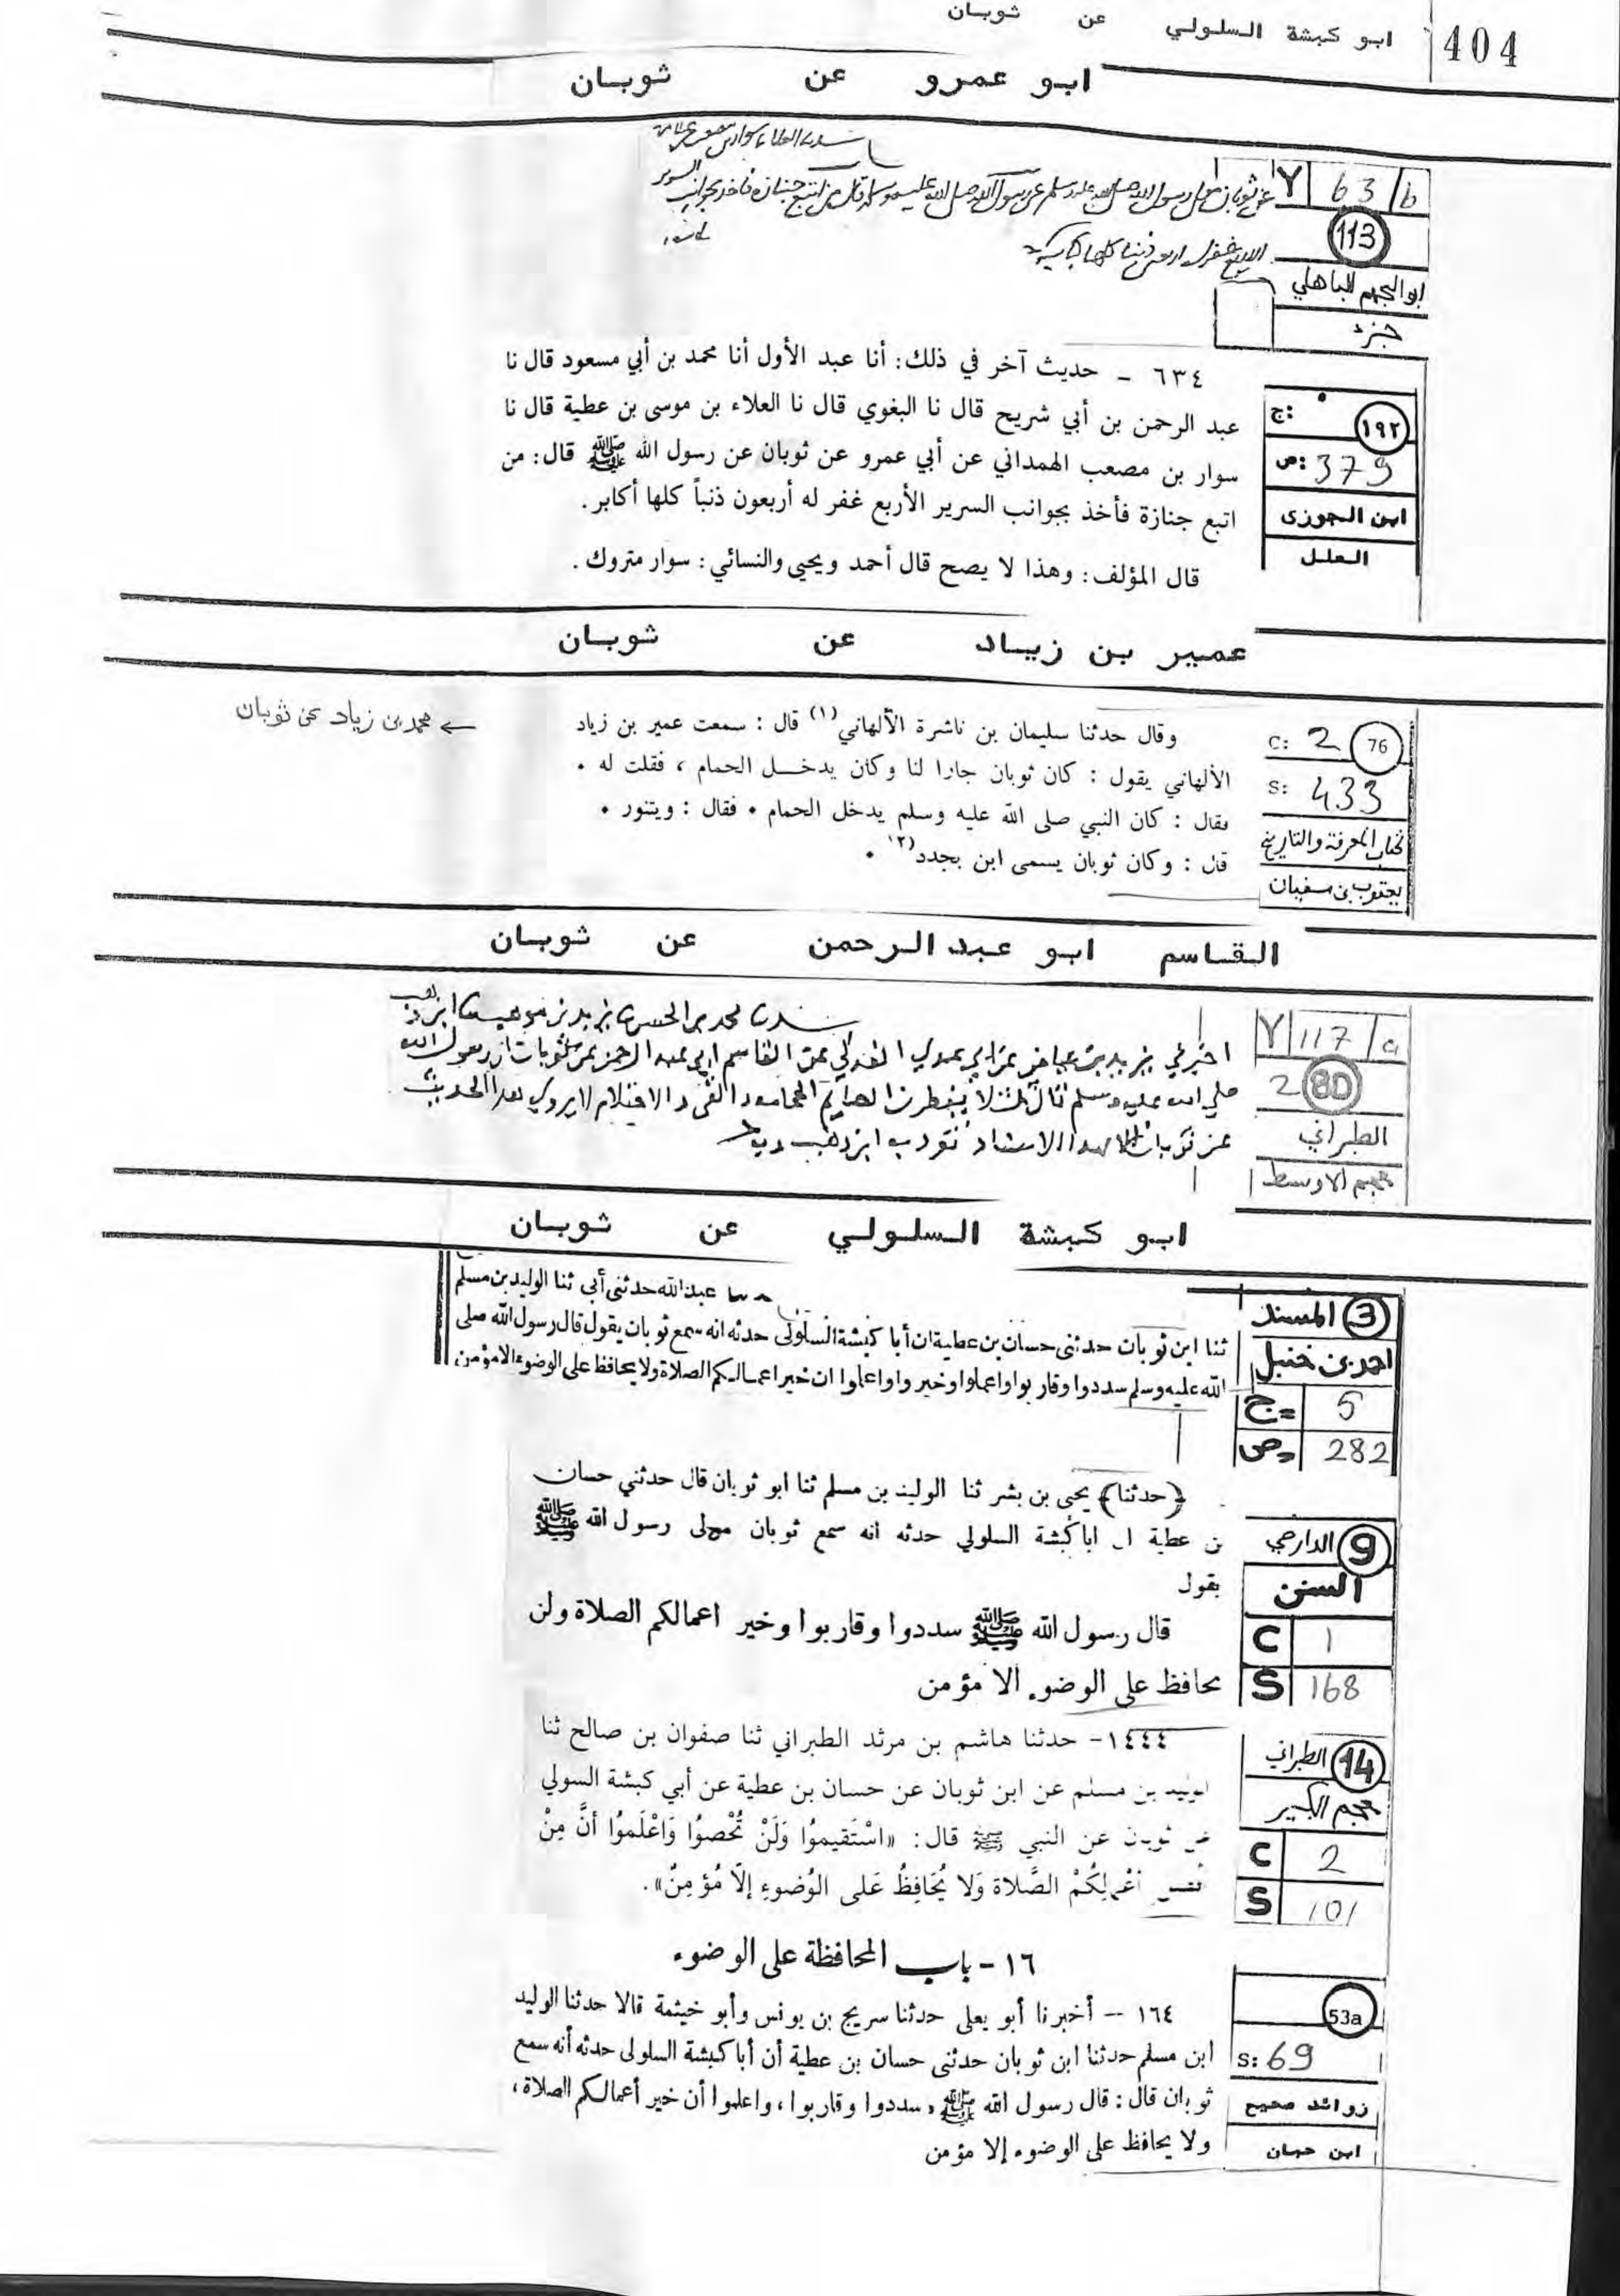 404
ابو كبشة السلولي عن ثوبان
ابو عمرو عن ثوبان
Y 63/b
113
ابو الجهم الباهلي
جزء
عن ثوبان مولى رسول الله صلى الله عليه وسلم عن رسول الله صلى الله عليه وسلم قال من اتبع جنازة فاخذ بجوانب السرير
الاربع غفر له اربعون ذنبا كلها كبيرة
٦٣٤ - حديث آخر في ذلك: أنا عبد الأول أنا محمد بن أبي مسعود قال نا
عبد الرحمن بن أبي شريح قال نا البغوي قال نا العلاء بن موسى بن عطية قال نا
سوار بن مصعب الهمداني عن أبي عمرو عن ثوبان عن رسول الله ﷺ قال: من
اتبع جنازة فأخذ بجوانب السرير الأربع غفر له أربعون ذنباً كلها أكابر.
قال المؤلف: وهذا لا يصح قال أحمد ويحيى والنسائي: سوار متروك.
ج:
١٩٢
ص: 379
ابن الجوزى
العلل
عمير بن زياد عن ثوبان
وقال حدثنا سليمان بن ناشرة الألهاني(١) قال : سمعت عمير بن زياد
الألهاني يقول : كان ثوبان جارا لنا وكان يدخل الحمام ، فقلت له .
فقال : كان النبي صلى الله عليه وسلم يدخل الحمام . فقال : ويتنور .
قال : وكان ثوبان يسمى ابن بجدد(٢) .
← محمد بن زياد عن ثوبان
C: 2 76
S: 433
كتاب المعرفة والتاريخ
يعقوب بن سفيان
القاسم ابو عبد الرحمن عن ثوبان
Y/117/a
2 80
الطبراني
معجم الاوسط
اخبرني يزيد بن عياض عن القاسم ابي عبد الرحمن عن ثوبان ان رسول الله
صلى الله عليه وسلم قال ثلاث لا يفطرن الصائم الحجامة والقيء والاحتلام لا يروى هذا الحديث
عن ثوبان الا بهذا الاسناد تفرد به ابن وهب
ابو كبشة السلولي عن ثوبان
3 المسند
احمد بن حنبل
ج= 5
ص= 282
عبد الله حدثنى أبى ثنا الوليد بن مسلم
ثنا ابن ثوبان حدثنى حسان بن عطية ان أبا كبشة السلولى حدثه انه سمع ثوبان يقول قال رسول الله صلى
الله عليه وسلم سددوا وقاربوا واعملوا وخيروا واعلموا ان خير اعمالكم الصلاة ولا يحافظ على الوضوء الا مؤمن
﴿حدثنا﴾ يحيى بن بشر ثنا الوليد بن مسلم ثنا ابو ثوبان قال حدثني حسان
بن عطية ان ابا كبشة السلولي حدثه انه سمع ثوبان مولى رسول الله ﷺ
يقول
قال رسول الله ﷺ سددوا وقاربوا وخير اعمالكم الصلاة ولن
يحافظ على الوضوء الا مؤمن
9 الدارمي
السنن
C 1
S 168
١٤٤٤- حدثنا هاشم بن مرثد الطبراني ثنا صفوان بن صالح ثنا
الوليد بن مسلم عن ابن ثوبان عن حسان بن عطية عن أبي كبشة السولي
عن ثوبان عن النبي ﷺ قال: «اسْتَقيموُا وَلَنْ تُحْصوُا وَاعْلَموُا أنَّ مِنْ
أعْمالِكُمْ الصَّلاة وَلا يُحَافِظُ عَلى الوُضوءِ إلّا مُؤمِنٌ».
14 الطبراني
معجم الكبير
C 2
S 101
١٦ - باب المحافظة على الوضوء
١٦٤ - أخبرنا أبو يعلى حدثنا سريج بن يونس وأبو خيثمة قالا حدثنا الوليد
ابن مسلم حدثنا ابن ثوبان حدثنى حسان بن عطية أن أبا كبشة السلولى حدثه أنه سمع
ثوبان قال: قال رسول الله ﷺ «سددوا وقاربوا، واعلموا أن خير أعمالكم الصلاة،
ولا يحافظ على الوضوء إلا مؤمن
53a
S: 69
زوائد صحيح
ابن حبان